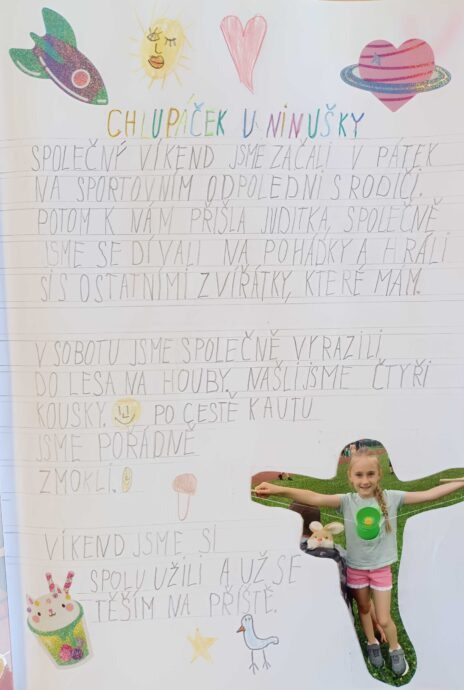 CHLUPÁČEK U NINUŠKY
SPOLEČNÝ VÍKEND JSME ZAČALI V PÁTEK
NA SPORTOVNÍM ODPOLEDNI S RODIČI.
POTOM K NÁM PŘIŠLA JUDITKA, SPOLEČNĚ
JSME SE DÍVALI NA POHÁDKY A HRÁLI
SI S OSTATNÍMI ZVÍŘÁTKY, KTERÉ MÁM.
V SOBOTU JSME SPOLEČNĚ VYRAZILI
DO LESA NA HOUBY. NAŠLI JSME ČTYŘI
KOUSKY. PO CESTĚ K AUTU
JSME POŘÁDNĚ
ZMOKLI.
VÍKEND JSME SI
SPOLU UŽILI A UŽ SE
TĚŠÍM NA PŘÍŠTĚ.